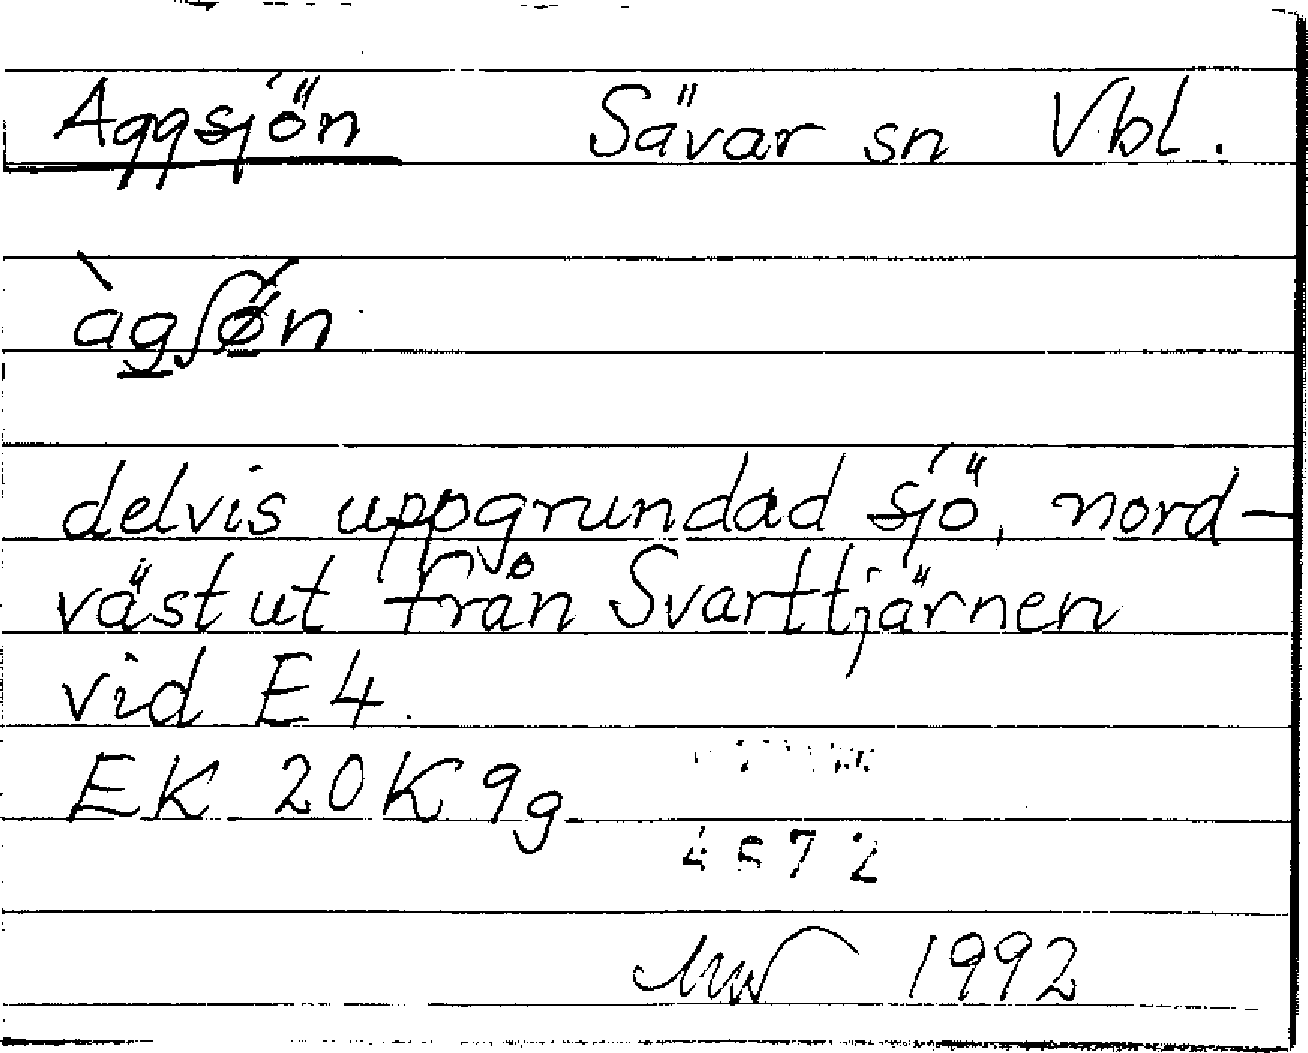 Aggsjön Sävar sn Vbl.
àgʃø̀n
delvis uppgrundad sjö, nord-
väst ut från Svarttjärnen
vid E4.
EK 20K 9g
4572
1992